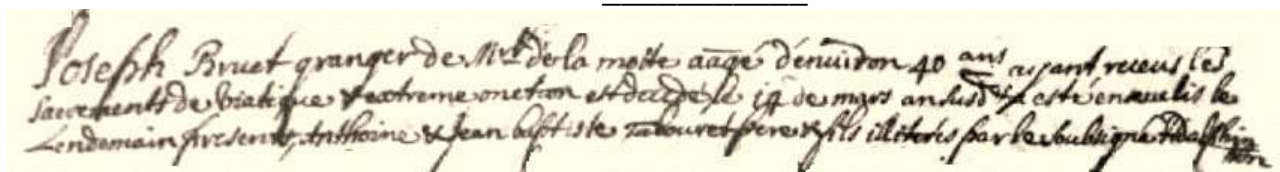 Joseph Bruet granger de Mr de la motte aagé d'environ 40 ans ayant receus les
sacrements de viatique & extreme onction est decedé le 14 de mars an susdt & a esté ensevelis le
Lendemain presents Anthoine & Jean baptiste rabouret pere & fils illiterés par le soubsigné